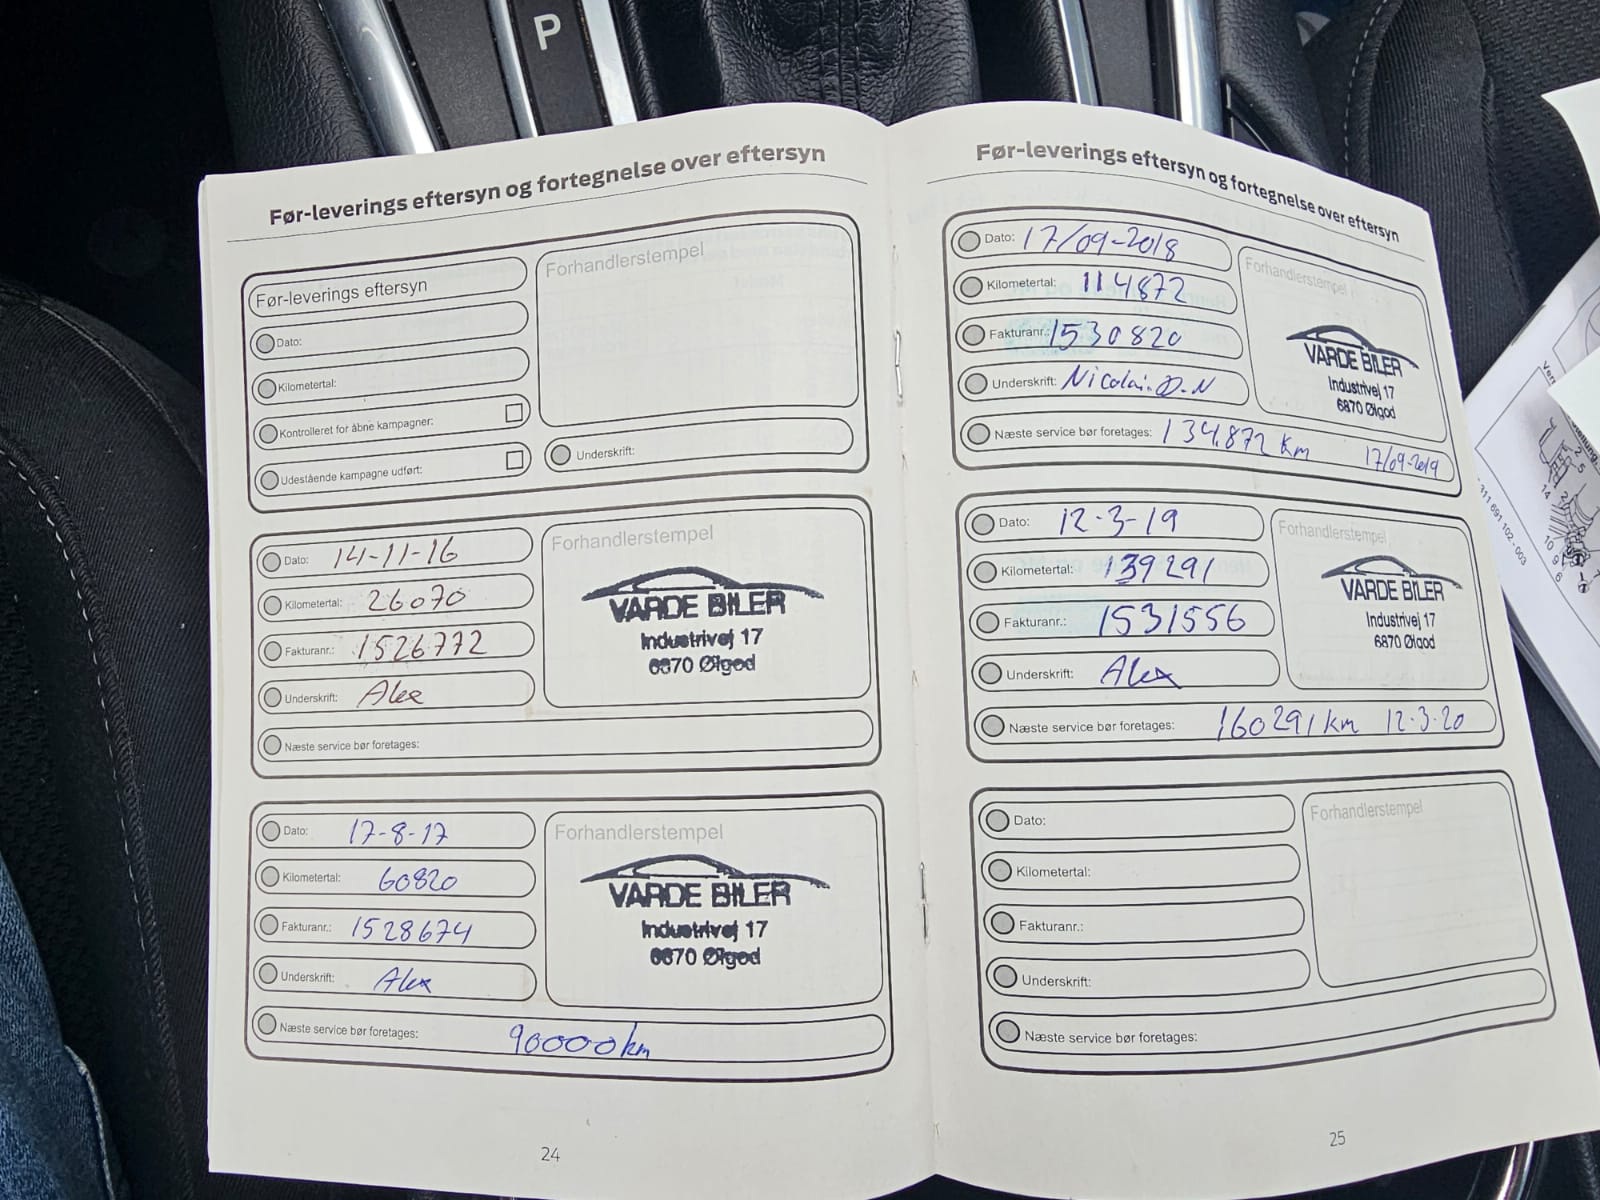 P
Før-leverings eftersyn og fortegnelse over eftersyn
Før-leverings eftersyn
Dato:
Kilometertal:
Kontrolleret for åbne kampagner:
Udestående kampagne udført:
Forhandlerstempel
Underskrift:
Dato: 14-11-16
Kilometertal: 26070
Fakturanr.: 1526772
Underskrift: Alex
Næste service bør foretages:
Forhandlerstempel
VARDE BILER
Industrivej 17
6870 Ølgod
Dato: 17-8-17
Kilometertal: 60820
Fakturanr.: 1528674
Underskrift: Alex
Næste service bør foretages: 90000 km
Forhandlerstempel
VARDE BILER
Industrivej 17
6870 Ølgod
24
Før-leverings eftersyn og fortegnelse over eftersyn
Dato: 17/09-2018
Kilometertal: 114872
Fakturanr.: 1530820
Underskrift: Nicolai. D.N
Næste service bør foretages: 134.872 km 17/09-2019
Forhandlerstempel
VARDE BILER
Industrivej 17
6870 Ølgod
Dato: 12-3-19
Kilometertal: 139291
Fakturanr.: 1531556
Underskrift: Alex
Næste service bør foretages: 160291 km 12-3-20
Forhandlerstempel
VARDE BILER
Industrivej 17
6870 Ølgod
Dato:
Kilometertal:
Fakturanr.:
Underskrift:
Næste service bør foretages:
Forhandlerstempel
25
311 691 102 - 003